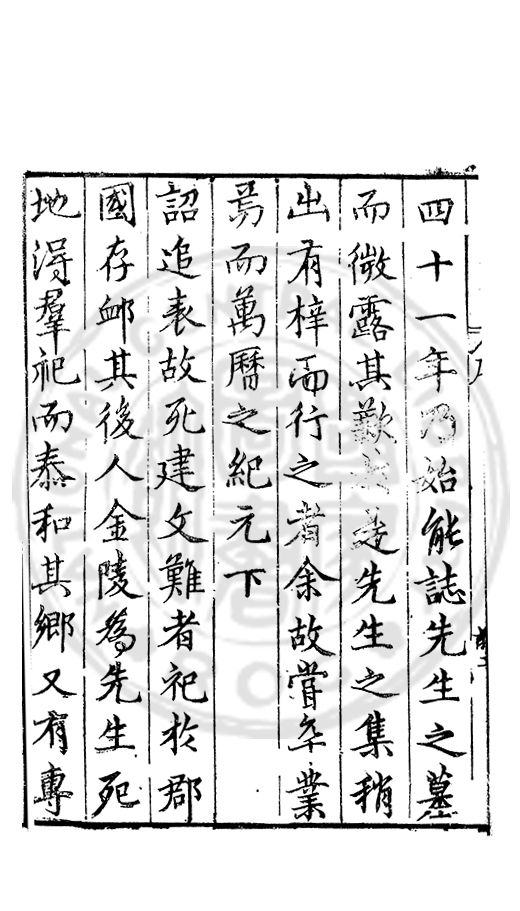 四十一年乃始能誌先生之墓
而微露其歎先生之集稍
出有梓而行之者余故嘗卒業
焉而萬曆之紀元下
詔追表故死建文難者祀於郡
國存卹其後人金陵為先生死
地得羣祀而泰和其鄉又有專